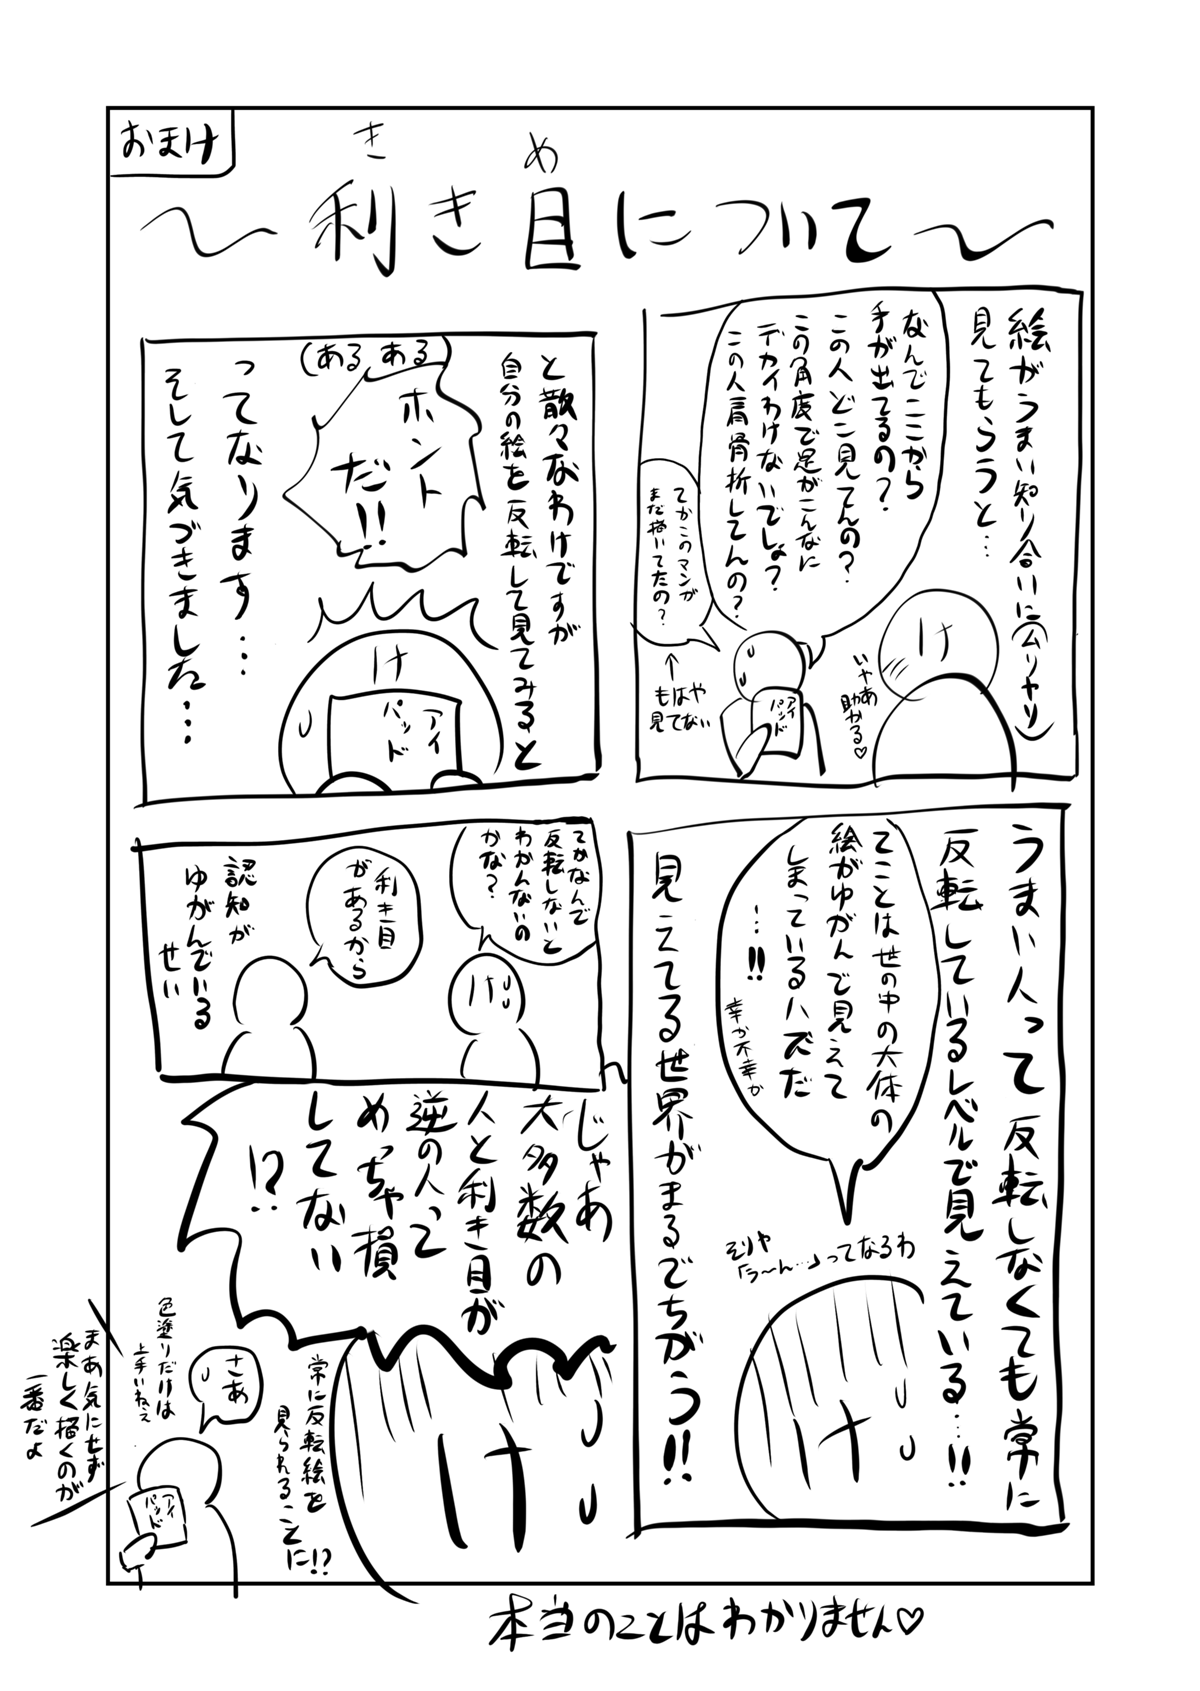 おまけ
き
め
～利き目について～
絵がうまい知り合いに(ムリヤリ)
見てもらうと…
なんでここから
手が出てるの?
この人どこ見てんの?
この角度で足がこんなに
デカイわけないでしょ?
この人肩骨折してんの?
てかこのマンガ
まだ描いてたの?
↑
もはや
見てない
け
いやあ
助かる♡
アイ
パッド
と散々なわけですが
自分の絵を反転して見てみると
(あるある)
ホント
だ!!
ってなります…
そして気づきました…
け
アイ
パッド
うまい人って反転しなくても常に
反転しているレベルで見えている…!!
てことは世の中の大体の
絵がゆがんで見えて
しまっているハズだ
…!!
幸か不幸か
見えてる世界がまるでちがう!!
そりゃ
「う〜ん…」ってなるわ
け
てかなんで
反転しないと
わかんないの
かな?
け
利き目
があるから
認知が
ゆがんでいる
せい
じゃあ
大多数の
人と利き目が
逆の人って
めっちゃ損
してない
!?
け
常に反転絵を
見られることに!?
さあ
色塗りだけは
上手いねえ
アイ
パッド
まあ気にせず
楽しく描くのが
一番だよ
本当のことはわかりません♡